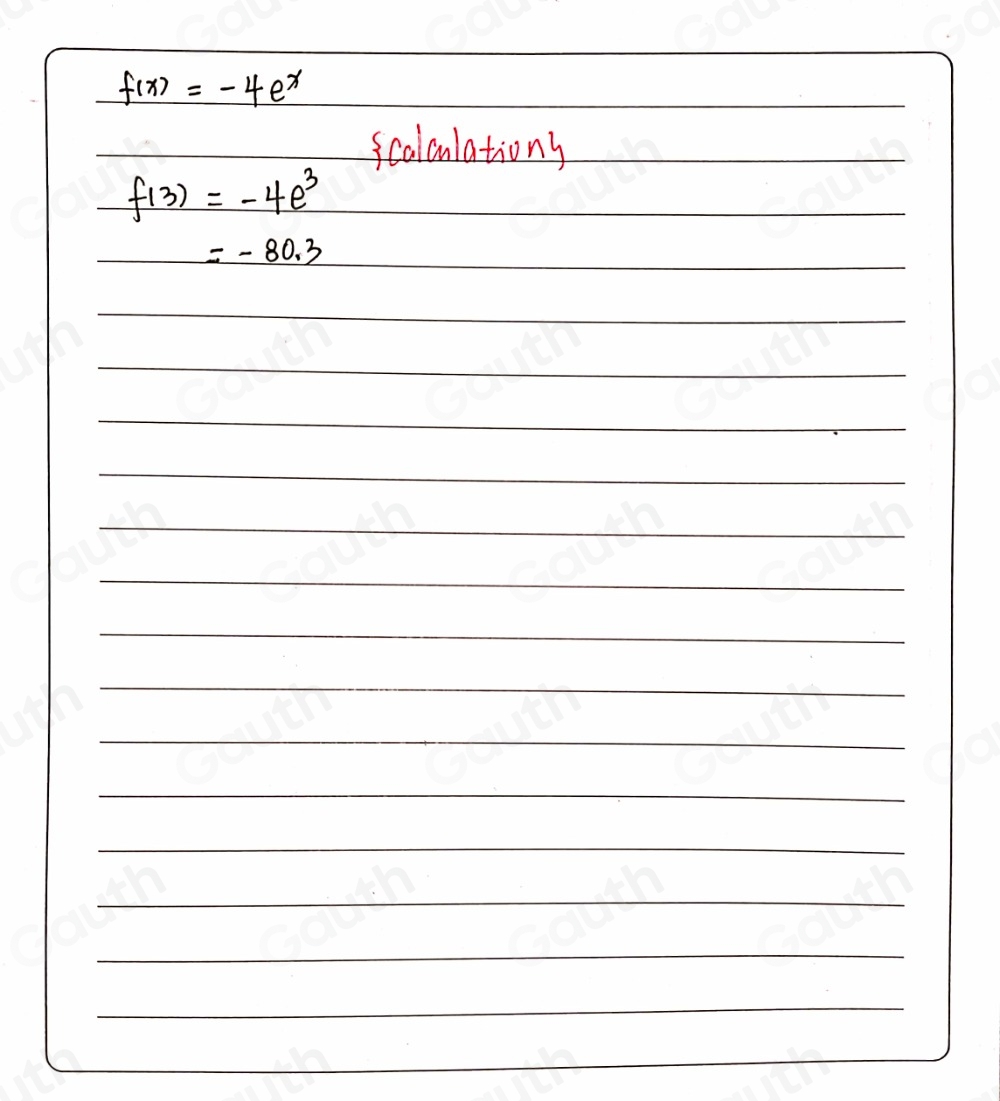 f(x) = -4e^x
{calculation}
f(3) = -4e^3
= -80.3